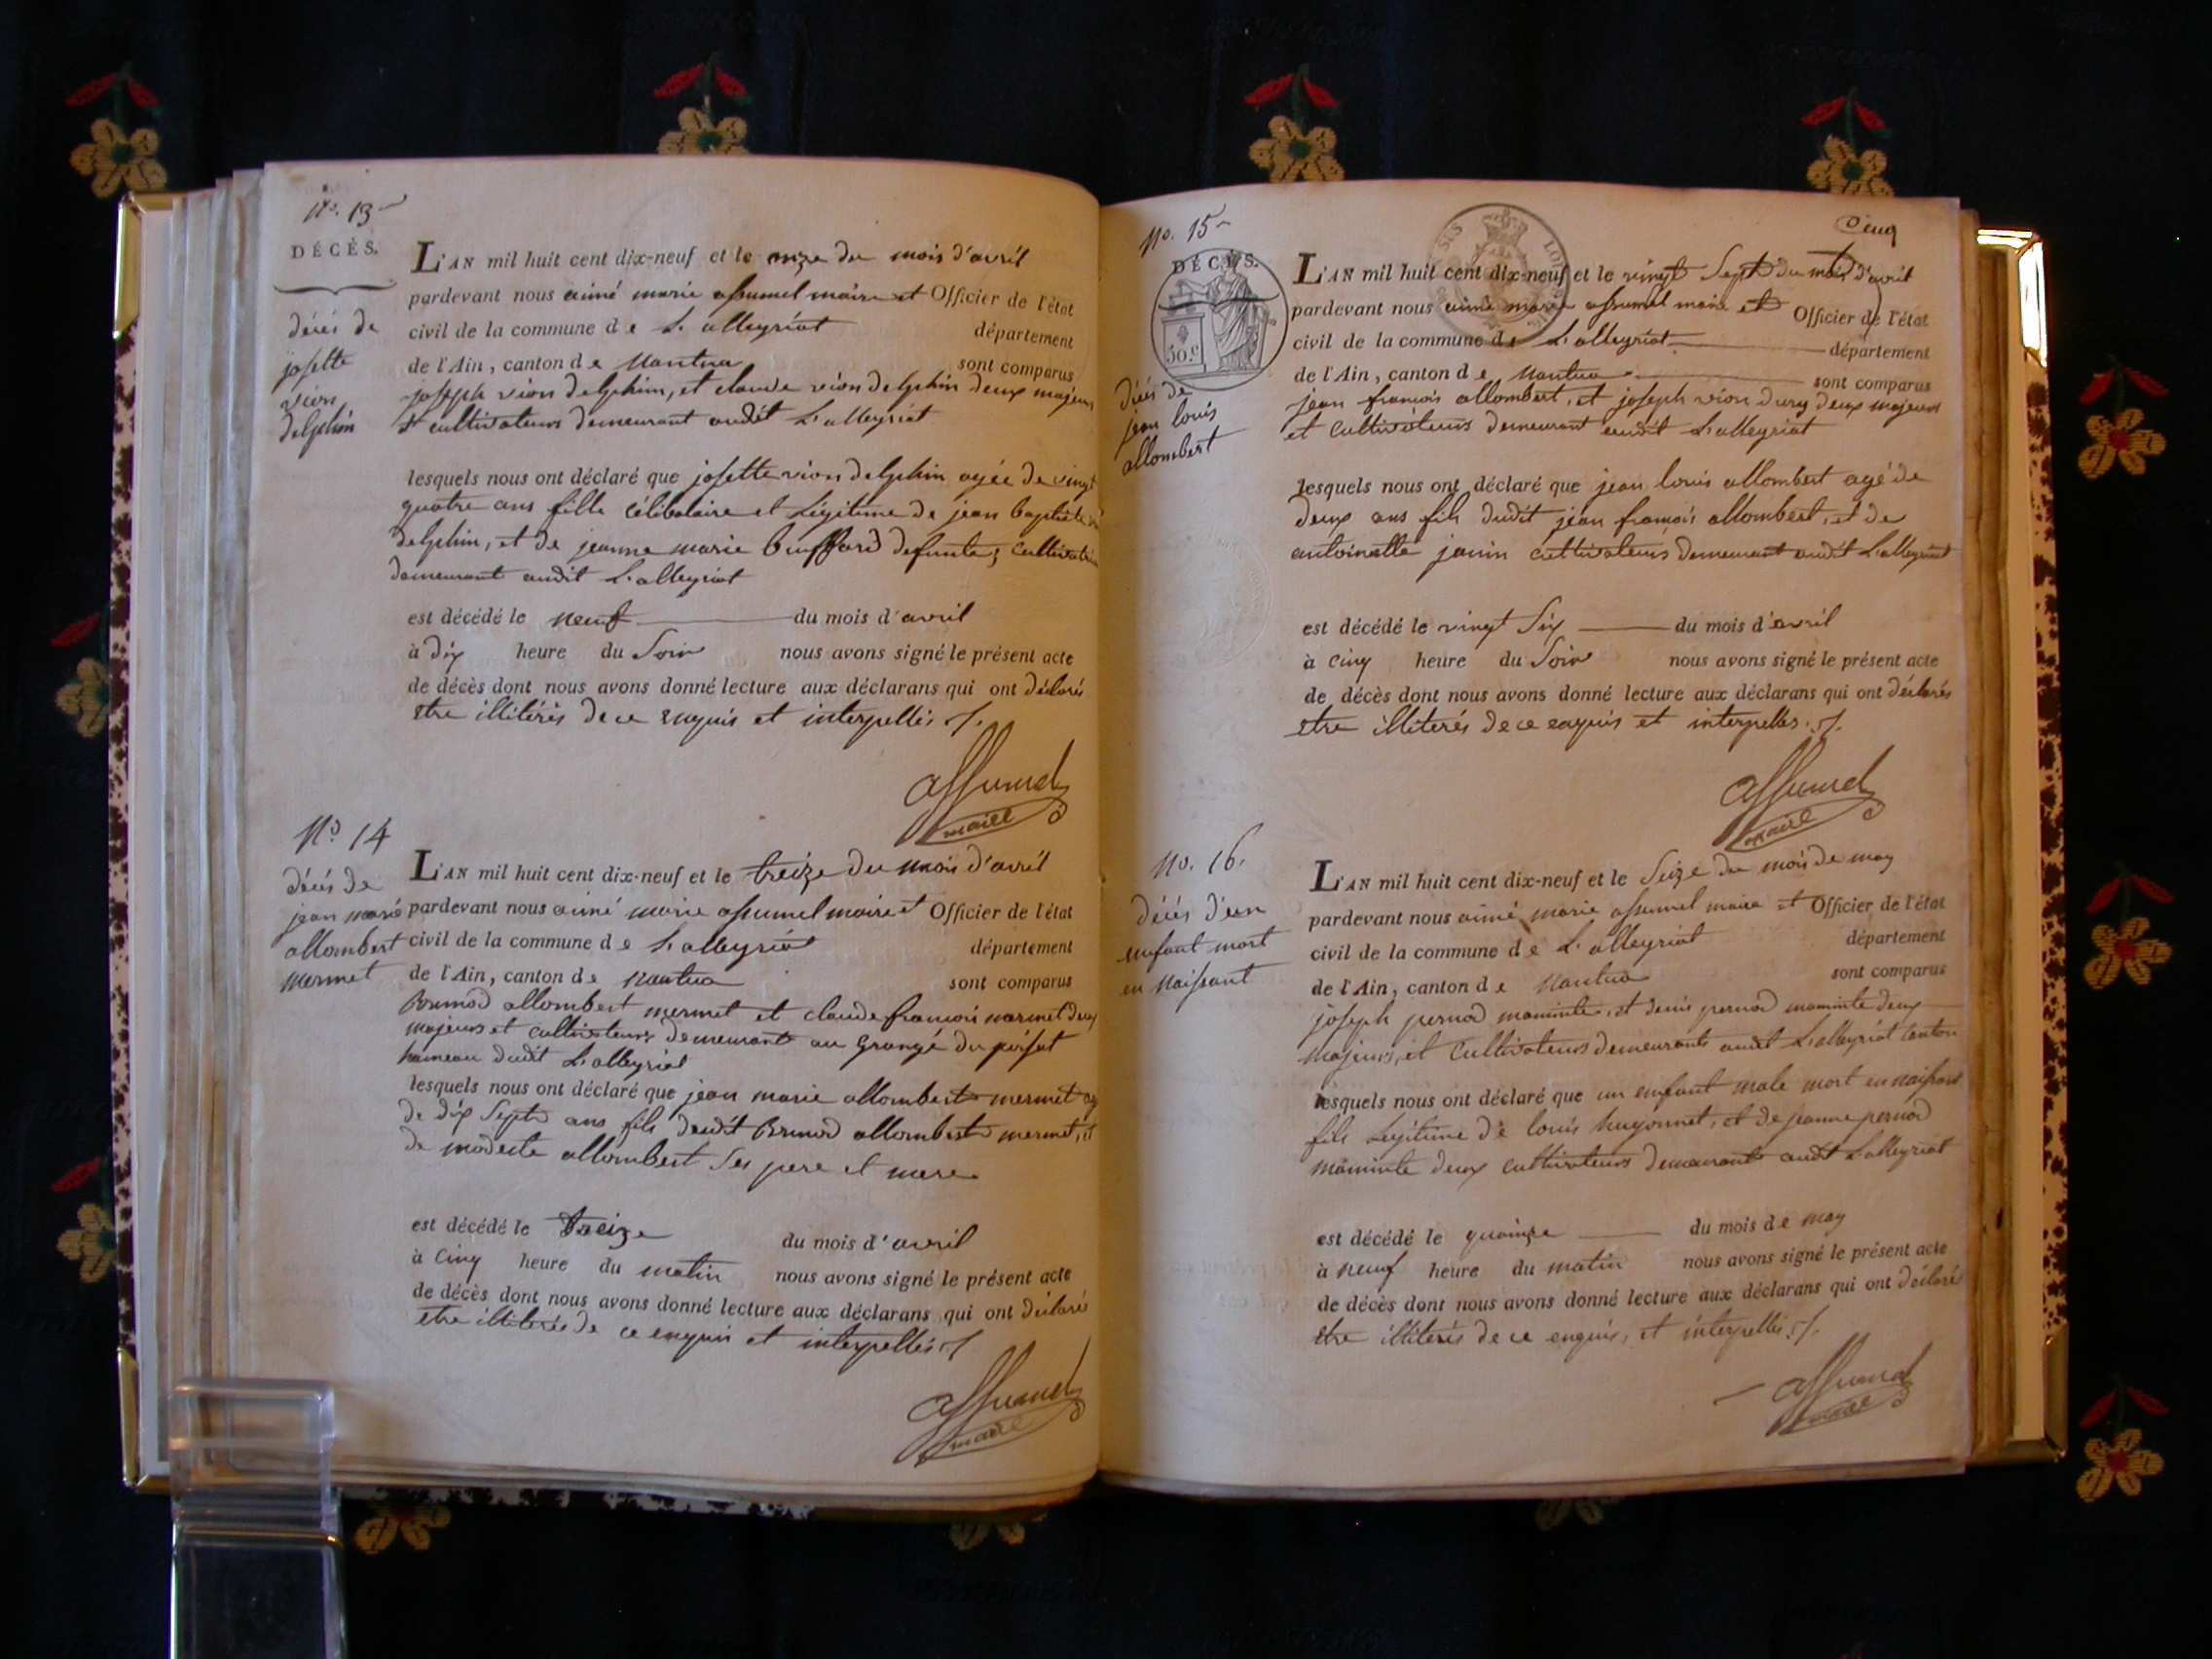 No. 13
DÉCÈS.
décés de
josette
vion
delphin
L'AN mil huit cent dix-neuf et le onze du mois d'avril
pardevant nous aimé marie assumel maire et Officier de l'état
civil de la commune de L'alleyriat département
de l'Ain, canton de Nantua sont comparus
joseph vion delphin, et claude vion delphin deux majeurs
et cultivateurs demeurant audit L'alleyriat
lesquels nous ont déclaré que josette vion delphin agée de vingt
quatre ans fille célibataire et Légitime de jean baptiste
delphin, et de jeanne marie buffard defunte, cultivatrice
demeurant audit L'alleyriat
est décédé le neuf du mois d'avril
à dix heure du Soir nous avons signé le présent acte
de décès dont nous avons donné lecture aux déclarans qui ont déclarés
etre illitérés de ce enquis et interpellés ./.
assumel
maire
No 14
décés de
jean marie
allombert
mermet
L'AN mil huit cent dix-neuf et le treize du mois d'avril
pardevant nous aimé marie assumel maire et Officier de l'état
civil de la commune de L'alleyriat département
de l'Ain, canton de Nantua sont comparus
Brunod allombert mermet et claude francois mermet deux
majeurs et cultivateurs demeurants au grange du poisat
hameau dudit L'alleyriat
lesquels nous ont déclaré que jean marie allombert mermet agé
de dix Sept ans fils dudit Brunod allombert mermet, et
de modeste allombert Ses pere et mere
est décédé le treize du mois d'avril
à cinq heure du matin nous avons signé le présent acte
de décès dont nous avons donné lecture aux déclarans qui ont déclarés
etre illitérés de ce enquis et interpellés ./.
assumel
maire
No. 15
Cinq
DÉCÈS.
50.c
décés de
jean louis
allombert
L'AN mil huit cent dix-neuf et le vingt Sept du mois d'avril
pardevant nous aimé marie assumel maire et Officier de l'état
civil de la commune de L'alleyriat département
de l'Ain, canton de Nantua sont comparus
jean francois allombert, et joseph vion dury deux majeurs
et cultivateurs demeurant audit L'alleyriat
lesquels nous ont déclaré que jean louis allombert agé de
deux ans fils dudit jean francois allombert, et de
antoinette janin cultivateurs demeurant audit L'alleyriat
est décédé le vingt Six du mois d'avril
à cinq heure du Soir nous avons signé le présent acte
de décès dont nous avons donné lecture aux déclarans qui ont déclarés
etre illiterés de ce enquis et interpellés ./.
assumel
maire
No. 16.
décés d'un
enfant mort
en Naissant
L'AN mil huit cent dix-neuf et le Seize du mois de may
pardevant nous aimé marie assumel maire et Officier de l'état
civil de la commune de L'alleyriat département
de l'Ain, canton de Nantua sont comparus
joseph pernod maminte, et denis pernod maminte deux
majeurs, et cultivateurs demeurants audit L'alleyriat canton
lesquels nous ont déclaré que un enfant male mort en naissant
fils Légitime de louis hugonnet, et de jeanne pernod
maminte deux cultivateurs demeurants audit L'alleyriat
est décédé le quainze du mois de may
à neuf heure du matin nous avons signé le présent acte
de décès dont nous avons donné lecture aux déclarans qui ont déclarés
etre illiterés de ce enquis, et interpellés ./.
assumel
maire